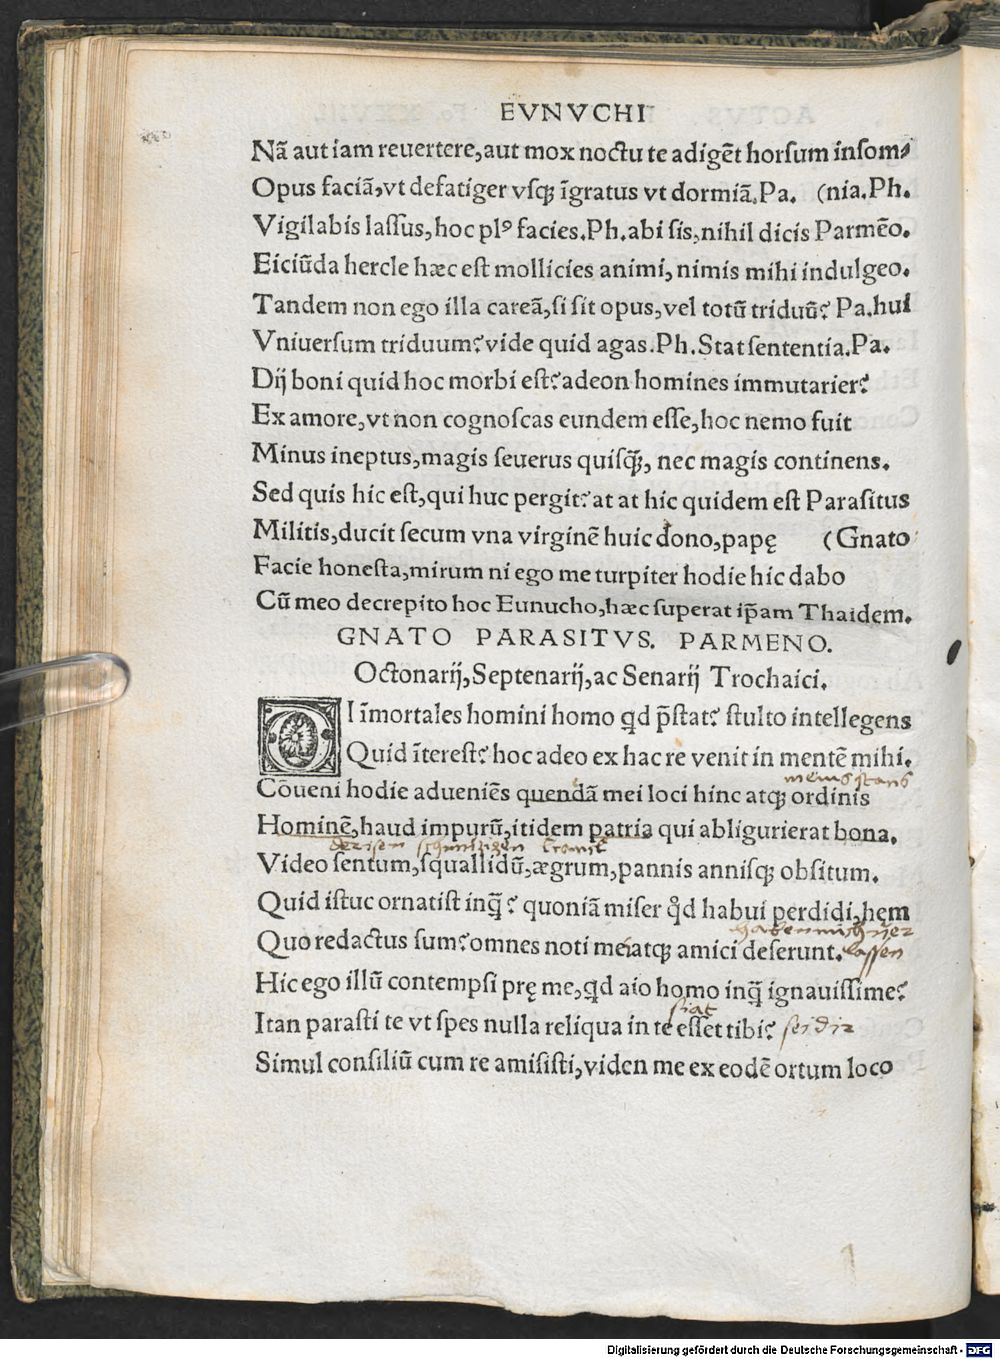 EVNVCHI
Nã aut iam reuertere,aut mox noctu te adigẽt horsum insom⸗
Opus faciã,vt defatiger vsqꝫ ĩgratus vt dormiã.Pa. (nia.Ph.
Vigilabis lassus,hoc plꝰ facies.Ph.abi sis,nihil dicis Parmẽo.
Eiciũda hercle hæc est mollicies animi,nimis mihi indulgeo.
Tandem non ego illa careã,si sit opus,vel totũ triduũ? Pa.hui
Vniuersum triduum?vide quid agas.Ph.Stat sententia.Pa.
Dij boni quid hoc morbi est?adeon homines immutarier?
Ex amore,vt non cognoscas eundem esse,hoc nemo fuit
Minus ineptus,magis seuerus quisqꝫ̃, nec magis continens.
Sed quis hic est,qui huc pergit?at at hic quidem est Parasitus
Militis,ducit secum vna virginẽ huic dono,papę (Gnato
Facie honesta,mirum ni ego me turpiter hodie hic dabo
Cũ meo decrepito hoc Eunucho,hæc superat ip̃am Thaidem.
GNATO PARASITVS. PARMENO.
Octonarij,Septenarij,ac Senarij Trochaici.
DI ĩmortales homini homo qd p̃stat? stulto intellegens
Quid ĩterest?hoc adeo ex hac re venit in mentẽ mihi.
meins stans
Cõueni hodie adueniẽs quendã mei loci hinc atqꝫ ordinis
Hominẽ,haud impurũ,itidem patria qui abligurierat bona.
Video sentum,squallidũ,ægrum,pannis annisqꝫ obsitum.
Quid istuc ornatist inq̃? quoniã miser qd habui perdidi,hęm
haben mich
Quo redactus sum?omnes noti mei atqꝫ amici deserunt. lassen
Hic ego illũ contempsi prę me,qd aio homo inq̃ ignauissime?
Itan parasti te vt spes nulla reliqua in te esset tibi? sei dir
Simul consiliũ cum re amisisti,viden me ex eodẽ ortum loco
Digitalisierung gefördert durch die Deutsche Forschungsgemeinschaft - DFG